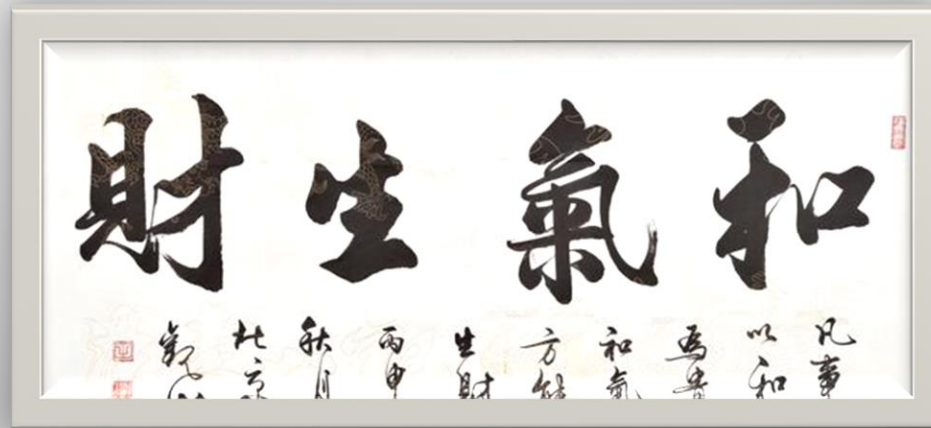 和氣生財
凡事
以和
為貴
和氣
方能
生財
丙申
秋月